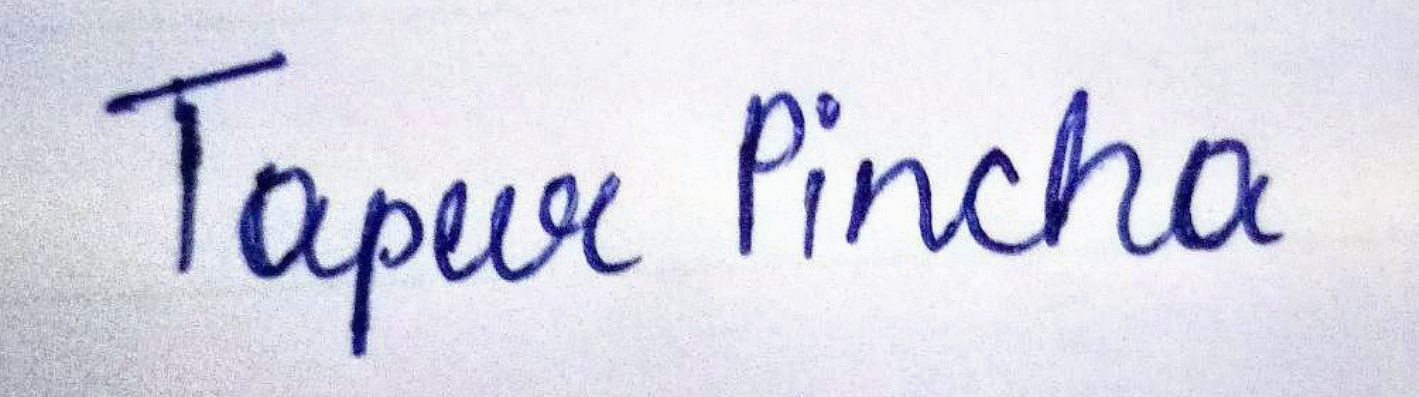 Tapur Pincha